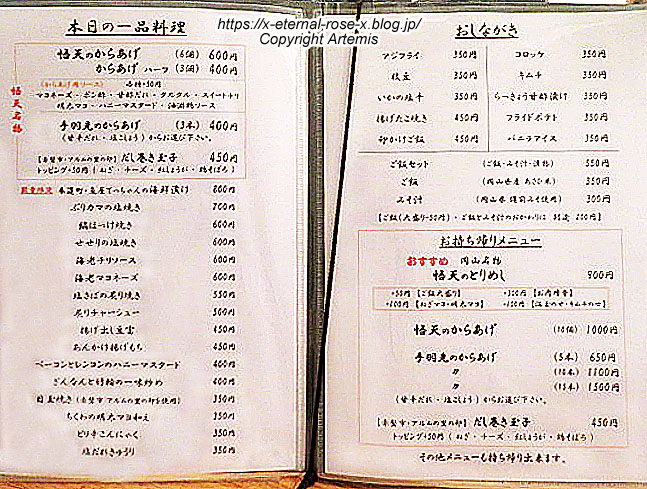 https://x-eternal-rose-x.blog.jp/
Copyright Artemis
本日の一品料理
悟天名物
悟天のからあげ (6個) 600円
からあげ ハーフ (3個) 400円
各種+50円
マヨネーズ・ポン酢・甘酢だれ・タルタル・スイートチリ
明太マヨ・ハニーマスタード・油淋鶏ソース
手羽先のからあげ (3本) 400円
(甘辛だれ・塩こしょう)からお選び下さい。
【赤磐市・アルムの里の卵】だし巻き玉子 450円
トッピング+50円 (ねぎ・チーズ・紅しょうが・鶏そぼろ)
数量限定 てっちゃんの海鮮漬け 800円
ぶりカマの塩焼き 700円
縞ほっけ焼き 600円
せせりの塩焼き 600円
海老チリソース 600円
海老マヨネーズ 600円
塩さばの炙り焼き 550円
炙りチャーシュー 500円
揚げ出し豆富 450円
あんかけ揚げもち 450円
ベーコンとレンコンのハニーマスタード 400円
ぎんなんと 一味炒め 400円
目玉焼き(赤磐市・アルムの里の卵を使用) 350円
ちくわの明太マヨ和え 350円
ピリ辛こんにゃく 350円
塩だれきゅうり 350円
おしながき
アジフライ 350円
枝豆 350円
いかの塩辛 350円
揚げたこ焼き 450円
卵かけご飯 450円
コロッケ 350円
キムチ 350円
らっきょう甘酢漬け 350円
フライドポテト 350円
バニラアイス 350円
ご飯セット (ご飯・みそ汁・漬物) 550円
ご飯 (岡山県産 あさひ米) 350円
みそ汁 (岡山県 備前みそ使用) 300円
【ご飯(大盛り+50円)・ご飯とみそ汁のおかわりは 別途 200円】
お持ち帰りメニュー
おすすめ 岡山名物
悟天のとりめし 900円
+50円【ご飯大盛り】 +300円【お肉増量】
+100円【ねぎマヨ・明太マヨ】
悟天のからあげ (10個) 1000円
手羽先のからあげ (5本) 650円
〃 (10本) 1100円
〃 (15本) 1500円
(甘辛だれ・塩こしょう)からお選び下さい。
【赤磐市・アルムの里の卵】だし巻き玉子 450円
トッピング+50円 (ねぎ・チーズ・紅しょうが・鶏そぼろ)
その他メニューも持ち帰り出来ます。